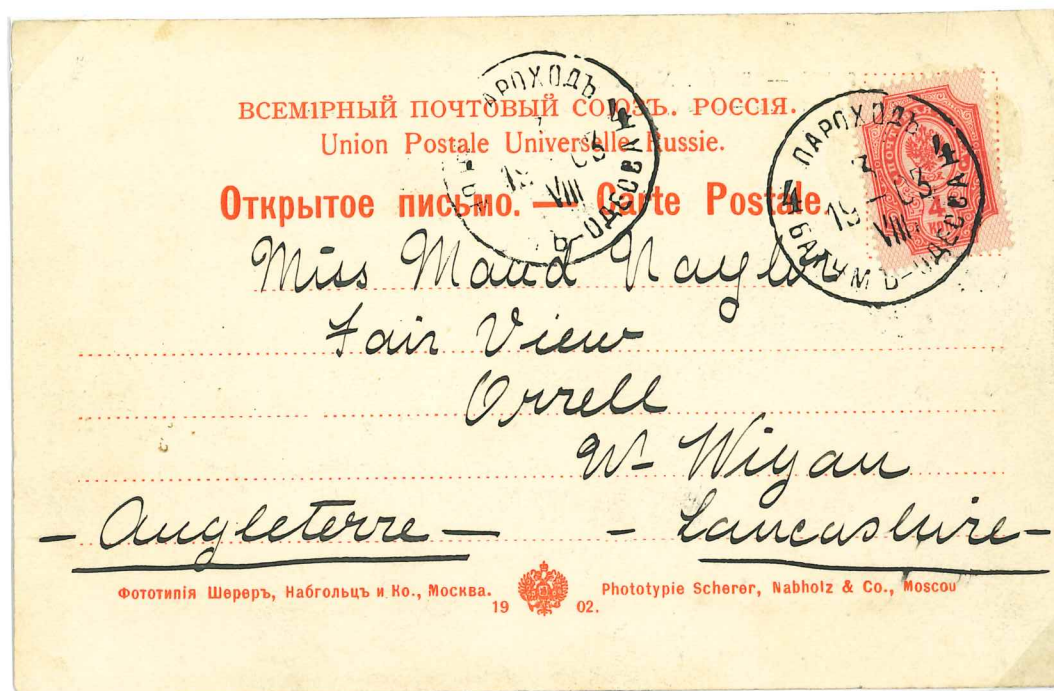 ВСЕМIРНЫЙ ПОЧТОВЫЙ СОЮЗЪ. РОССIЯ.
Union Postale Universelle. Russie.
Открытое письмо. — Carte Postale.
ПАРОХОДЪ 4 БАТУМЪ-ОДЕССА 4
3 VIII 1903
ПАРОХОДЪ 4 БАТУМЪ-ОДЕССА 4
3 VIII 1903
4
Miss Maud Naylor
Fair View
Orrell
Nr Wigan
- Angleterre - - Lancashire -
Фототипія Шереръ, Набгольцъ и Ко., Москва. 1902. Phototypie Scherer, Nabholz & Co., Moscou